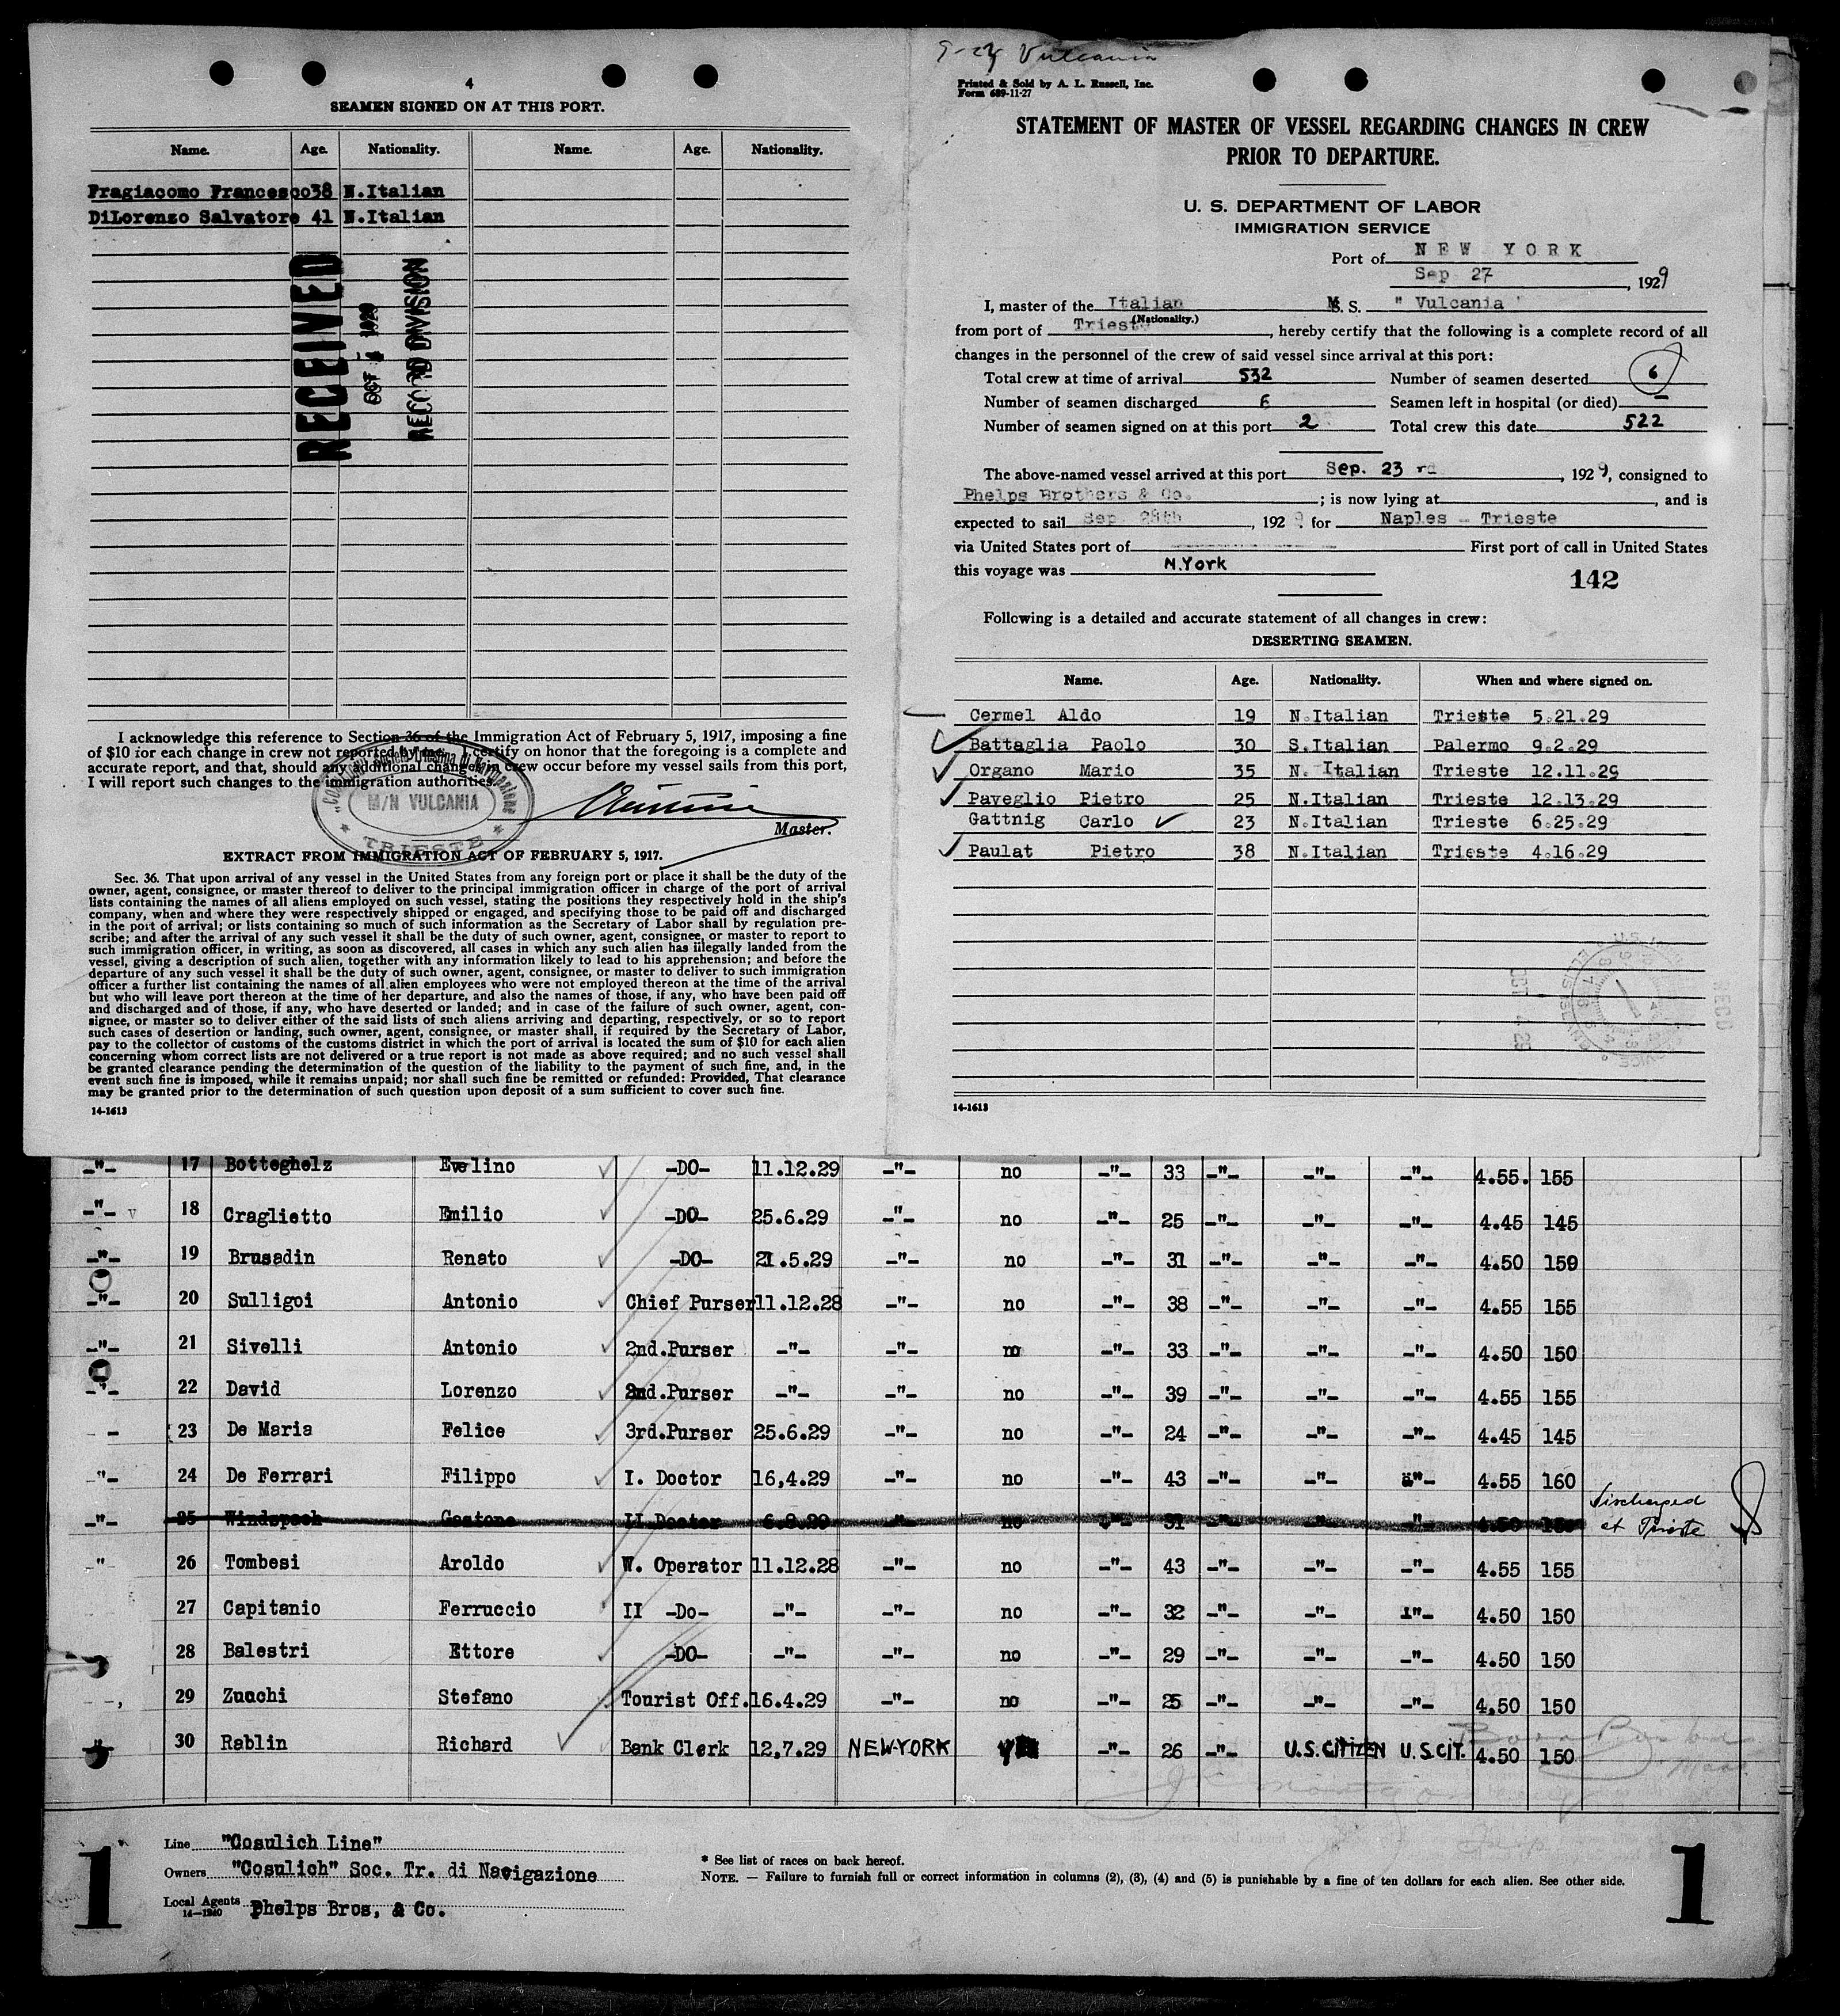 4
SEAMEN SIGNED ON AT THIS PORT.
Name. Age. Nationality. Name. Age. Nationality.
Fragiacomo Francesco 38 N.Italian
DiLorenzo Salvatore 41 N.Italian
RECEIVED
OCT 1929
RECORD DIVISION
I acknowledge this reference to Section 36 of the Immigration Act of February 5, 1917, imposing a fine
of $10 for each change in crew not reported by me. I certify on honor that the foregoing is a complete and
accurate report, and that, should any additional changes in crew occur before my vessel sails from this port,
I will report such changes to the immigration authorities.
M/N VULCANIA
TRIESTE
Master.
EXTRACT FROM IMMIGRATION ACT OF FEBRUARY 5, 1917.
Sec. 36. That upon arrival of any vessel in the United States from any foreign port or place it shall be the duty of the
owner, agent, consignee, or master thereof to deliver to the principal immigration officer in charge of the port of arrival
lists containing the names of all aliens employed on such vessel, stating the positions they respectively hold in the ship's
company, when and where they were respectively shipped or engaged, and specifying those to be paid off and discharged
in the port of arrival; or lists containing so much of such information as the Secretary of Labor shall by regulation pre-
scribe; and after the arrival of any such vessel it shall be the duty of such owner, agent, consignee, or master to report to
such immigration officer, in writing, as soon as discovered, all cases in which any such alien has illegally landed from the
vessel, giving a description of such alien, together with any information likely to lead to his apprehension; and before the
departure of any such vessel it shall be the duty of such owner, agent, consignee, or master to deliver to such immigration
officer a further list containing the names of all alien employees who were not employed thereon at the time of the arrival
but who will leave port thereon at the time of her departure, and also the names of those, if any, who have been paid off
and discharged and of those, if any, who have deserted or landed; and in case of the failure of such owner, agent, con-
signee, or master so to deliver either of the said lists of such aliens arriving and departing, respectively, or so to report
such cases of desertion or landing, such owner, agent, consignee, or master shall, if required by the Secretary of Labor,
pay to the collector of customs of the customs district in which the port of arrival is located the sum of $10 for each alien
concerning whom correct lists are not delivered or a true report is not made as above required; and no such vessel shall
be granted clearance pending the determination of the question of the liability to the payment of such fine, and, in the
event such fine is imposed, while it remains unpaid; nor shall such fine be remitted or refunded: Provided, That clearance
may be granted prior to the determination of such question upon deposit of a sum sufficient to cover such fine.
14-1613
Vulcania
Printed & Sold by A. L. Russell, Inc.
Form 689-11-27
STATEMENT OF MASTER OF VESSEL REGARDING CHANGES IN CREW
PRIOR TO DEPARTURE.
U. S. DEPARTMENT OF LABOR
IMMIGRATION SERVICE
Port of NEW YORK
Sep 27, 1929
I, master of the Italian M.S. S. "Vulcania"
(Nationality.)
from port of Trieste, hereby certify that the following is a complete record of all
changes in the personnel of the crew of said vessel since arrival at this port:
Total crew at time of arrival 532 Number of seamen deserted 6
Number of seamen discharged 6 Seamen left in hospital (or died) –
Number of seamen signed on at this port 2 Total crew this date 522
The above-named vessel arrived at this port Sep. 23 rd, 1929, consigned to
Phelps Brothers & Co.; is now lying at , and is
expected to sail Sep. 28th, 1929. for Naples - Trieste
via United States port of First port of call in United States
this voyage was N.York
142
Following is a detailed and accurate statement of all changes in crew:
DESERTING SEAMEN.
Name. Age. Nationality. When and where signed on.
Cermel Aldo 19 N.Italian Trieste 5.21.29
Battaglia Paolo 30 S.Italian Palermo 9.2.29
Organo Mario 35 N. Italian Trieste 12.11.29
Paveglio Pietro 25 N.Italian Trieste 12.13.29
Gattnig Carlo 23 N.Italian Trieste 6.25.29
Paulat Pietro 38 N.Italian Trieste 4.16.29
OCT 4 29
RECD
14-1613
-"- 17 Botteghelz Evelino -DO- 11.12.29 -"- no -"- 33 -"- -"- -"- 4.55. 155
-"- 18 Craglietto Emilio -DO- 25.6.29 -"- no -"- 25 -"- -"- -"- 4.45 145
-"- 19 Brusadin Renato -DO- 21.5.29 -"- no -"- 31 -"- -"- -"- 4.50 159
-"- 20 Sulligoi Antonio Chief Purser 11.12.28 -"- no -"- 38 -"- -"- -"- 4.55 155
-"- 21 Sivelli Antonio 2nd.Purser -"- -"- no -"- 33 -"- -"- -"- 4.50 150
-"- 22 David Lorenzo 2nd.Purser -"- -"- no -"- 39 -"- -"- -"- 4.55 155
- 23 De Maria Felice 3rd.Purser 25.6.29 -"- no -"- 24 -"- -"- -"- 4.45 145
-"- 24 De Ferrari Filippo I. Doctor 16,4.29 -"- no -"- 43 -"- -"- -"- 4.55 160
-"- 25 Windspach Gastone II Doctor 6.8.29 no -"- 31 -"- -"- " 4.50 150 discharged
at Trieste
" 26 Tombesi Aroldo W. Operator 11.12.28 -"- no -"- 43 -"- -"- -"- 4.55 155
27 Capitanio Ferruccio II -Do- -"- -"- no -"- 32 -"- -"- -"- 4.50 150
28 Balestri Ettore -DO- -"- -"- no -"- 29 -"- -"- -"- 4.50 150
29 Zucchi Stefano Tourist Off. 16.4.29 -"- no -"- 25 -"- -"- -"- 4,50 150
30 Rablin Richard Bank Clerk 12,7.29 NEW-YORK -"- 26 -"- U.S. CITIZEN U.S.CIT. 4.50 150
Mass
Line "Cosulich Line"
Owners "Cosulich" Soc. Tr. di Navigazione
Local Agents Phelps Bros, & Co.
14-1240
* See list of races on back hereof.
NOTE. — Failure to furnish full or correct information in columns (2), (3), (4) and (5) is punishable by a fine of ten dollars for each alien. See other side.
1
1